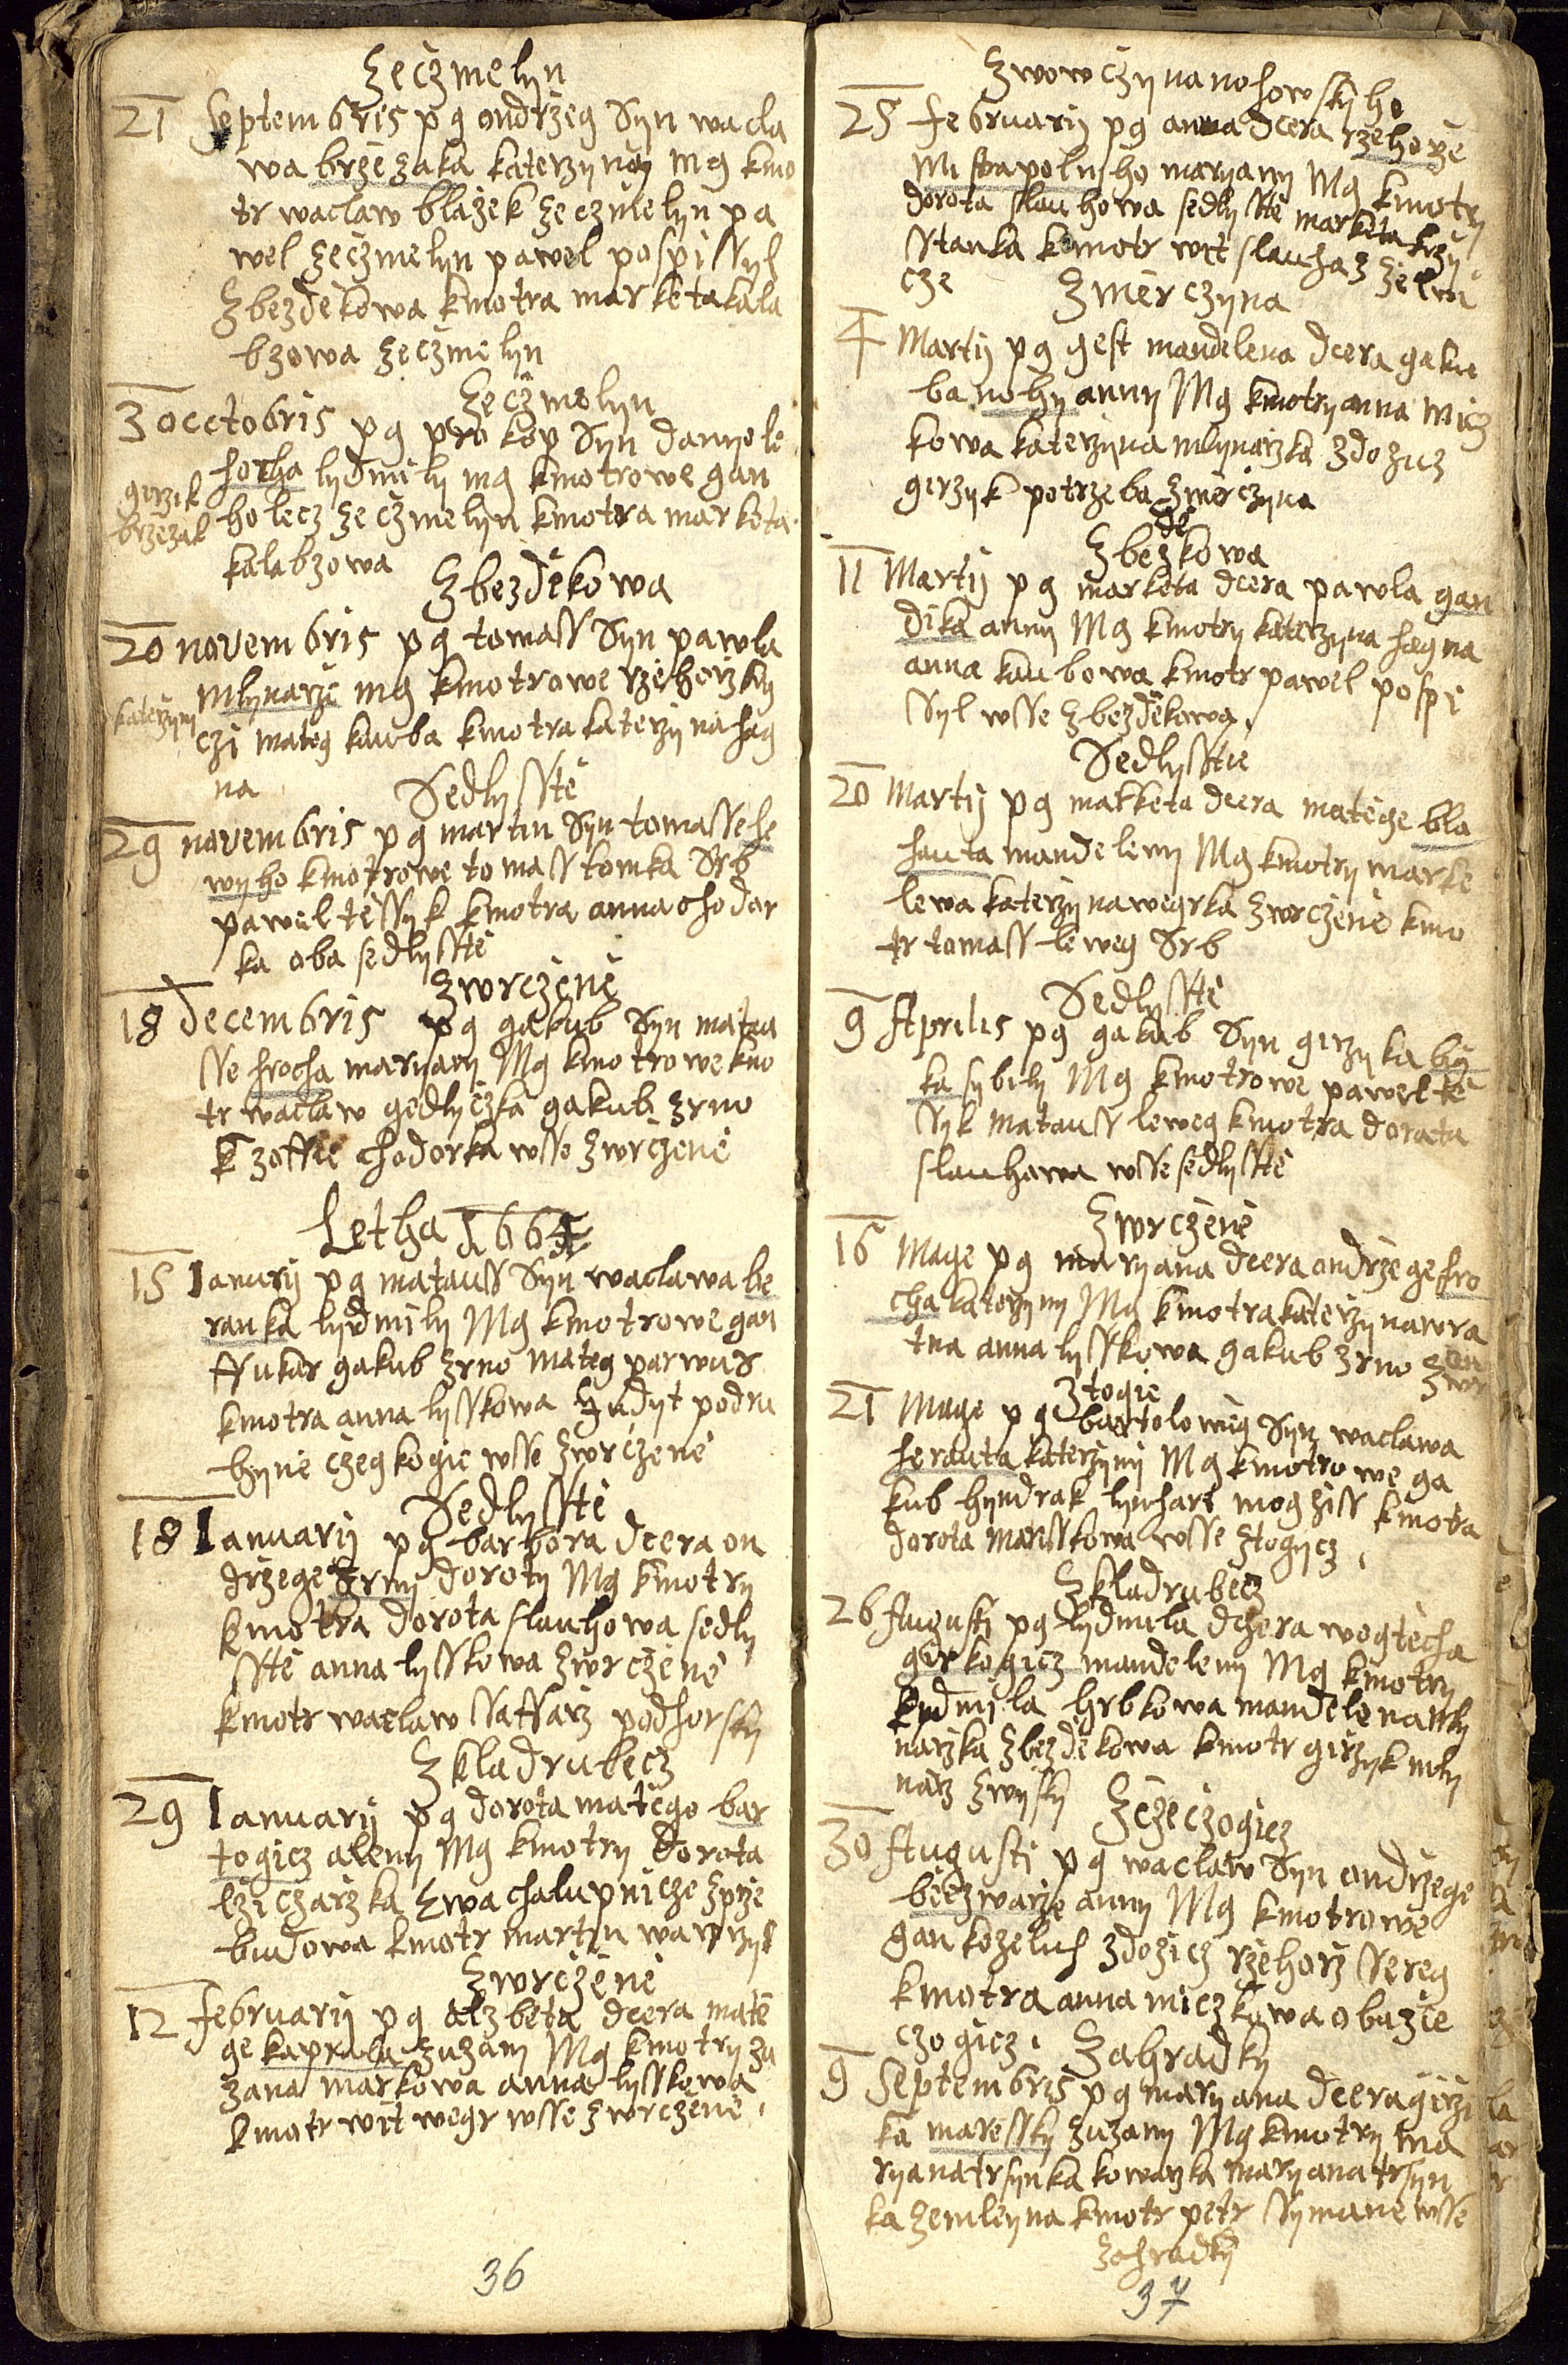 Zeczmelyn
21 Septembris pg ondrzeg Syn wacla
wa brzezaka katerzyny mg kmo
tr waclaw blazek zeczmelyn pa
wel zeczmelyn pawel pospissyl
Zbezdekowa kmotra marketa kala
bzowa zeczmelyn
Zeczmelyn
3 occtobris pg prokop Syn danyele
horha lydmily mg kmotrowe gan
girzik brzezak
holecz zeczmelyn kmotra marketa
kalabzowa
Zbezdekowa
20 novembris pg tomass Syn pawla
mlynarze mg kmotrowe rzehorz
katerzyny
czi mateg kauba kmotra katerzyna hag
na
Sedlysste
29 novembris pg martin Syn tomasse he
wyho kmotrowe tomass tomka Srb
pawel tessyk kmotra anna chodor
ka oba sedlysste
Zwrczene
18 decembris pg gakub Syn matau
sse hrocha maryany Mg kmotrowe kmo
tr waclaw gedlyczka gakub zrno
k zoffie chodorka wsse zwrczene
Letha 1664
15 Ianuarij pg matauss Syn waclawa be
ranka lydmily Mg kmotrowe gan
ssukar gakub zrno mateg parwus
kmotra anna lysskowa Judyt podru
hyne czegkogic wsse zwrczene
Sedlysste
18 Ianuarij pg barbora dcera on
drzege doroty Mg kmotry
kmotra dorota slauhowa sedly
sste anna lysskowa zwrczene
kmotr waclaw ssaffarz podhorsky
Zkladrubecz
29 Ianuarij pg dorota matege bar
togicz aleny Mg kmotry dorota
lziczarzka Ewa chalupnicze zprze
budowa kmotr martin wawrzyk
Zwrczene
12 februarij pg alzbeta dcera mate
ge kaprala zuzany Mg kmotry zu
zana markowa anna lysskowa
kmotr wit wegr wsse zwrczene
36
Zwowczyna nohowskyho
25 februarij pg anna dcera rzehorze
maryany Mg kmotry
dorota slauhowa sedlysste marketa krzy
sstanka kmotr wit slauha z zelwi
cze
Zmerczyna
4 Martij pg gest mandelena dcera gaku
ba nohy anny Mg kmotry anna micz
kowa katerzyna mlynarzka zdozicz
girzyk potrzeba zmerczyna
Zbezdekowa
11 Martij pg marketa dcera pawla gan
dika anny Mg kmotry katerzyna hagna
anna kaubowa kmotr pawel pospi
ssyl wsse zbezdekowa
Sedlysste
20 Martij pg marketa dcera matege bla
hauta mandeleny Mg kmotry marke
lewa katerzyna wegrka zwrczene kmo
tr tomass leweg Srb
Sedlysste
9 Aprilis pg gakub Syn girzyka by
ka sybily Mg kmotrowe pawel te
ssyk matauss leweg kmotra dorata
slauhowa wsse sedlysste
Zwrczene
16 Mage pg maryana dcera ondrzege hro
cha katerzyny Mg kmotra katerzyna wra
tna anna lysskowa gakub zrno
Ztogic
21 Mage pg bartolomeg Syn waclawa
herauta katerzyny Mg kmotrowe ga
kub hyndrak lynhart mogziss kmotra
dorota marsskowa wsse ztogycz
Zkladrubecz
26 Augusti pg lydmila dczera wogtecha
girkogicz mandeleny Mg kmotry
lydmila hrbkowa mandelena mly
narzka zbezdekowa kmotr girzyk mly
narz zwysky
Zezeczogicz
30 Augusti pg waclaw Syn ondrzege
bezwarze anny Mg kmotrowe
gan kozeluh zdozicz rzehorz ssereg
kmotra anna miczkowa oba zie
czogicz
Zahradky
9 Septembris pg maryana dcera girzi
ka maressky zuzany Mg kmotry ma
ryana trsynka kowarzka maryana trsyn
ka zemleyna kmotr petr ssymane wsse
zahradky
37